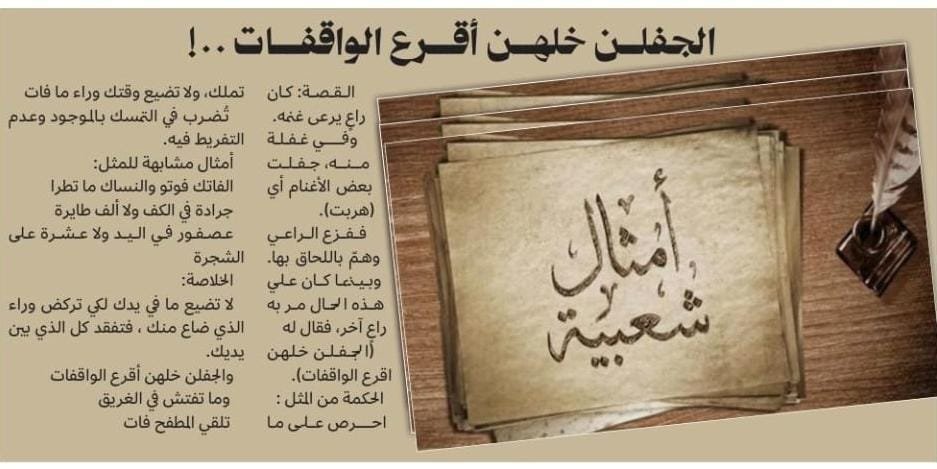 الجفلن خلهن أقرع الواقفات ..!
القصة: كان
راعٍ يرعى غنمه.
وفي غفلة
منه، جفلت
بعض الأغنام أي
(هربت).
ففزع الراعي
وهمّ باللحاق بها.
وبينما كان علي
هذه الحال مر به
راعٍ آخر، فقال له
(الجفلن خلهن
اقرع الواقفات).
الحكمة من المثل :
احرص على ما
تملك، ولا تضيع وقتك وراء ما فات
تُضرب في التمسك بالموجود وعدم
التفريط فيه.
أمثال مشابهة للمثل:
الفاتك فوتو والنساك ما تطرا
جرادة في الكف ولا ألف طايرة
عصفور في اليد ولا عشرة على
الشجرة
الخلاصة:
لا تضيع ما في يدك لكي تركض وراء
الذي ضاع منك ، فتفقد كل الذي بين
يديك.
والجفلن خلهن أقرع الواقفات
وما تفتش في الغريق
تلقي المطفح فات
أمثال
شعبية